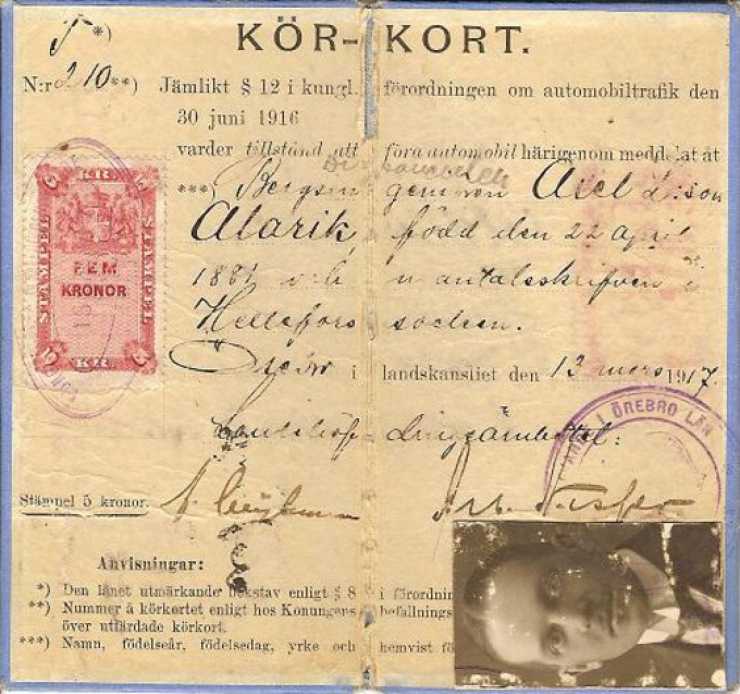 T *)
KÖR-KORT.
N:r 210 **) Jämlikt § 12 i kungl. förordningen om automobiltrafik den
30 juni 1916
varder tillstånd att föra automobil härigenom meddelat åt
***)
Alarik, född den 22 april
1881 och mantalsskriven i
Hellefors socken.
Örebro i landskansliet den 13 mars 1917.
Stämpel 5 kronor.
KR
STÄMPEL
FEM
KRONOR
STÄMPEL
5 KR 5
I ÖREBRO LÄN
Anvisningar:
*) Den länet utmärkande bokstav enligt § 8 i förordnin
**) Nummer å körkortet enligt hos Konungens befallnings
över utfärdade körkort.
***) Namn, födelseår, födelsedag, yrke och hemvist fö